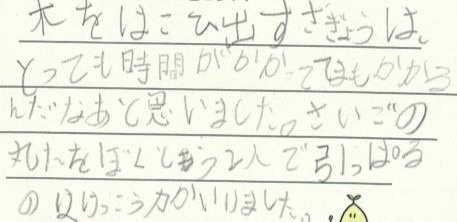 木をはこび出すさぎょうは、
とっても時間がかかってまもかかる
んだなあと思いました。さいごの
丸太をぼくともう2人で引っぱる
のはけっこう力がいりました。